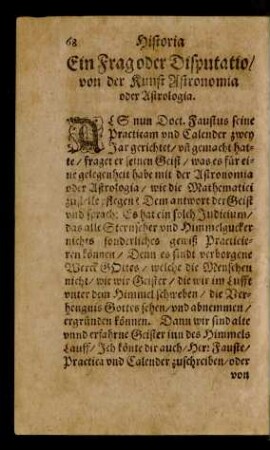 68 Historia
Ein Frag oder Disputatio/
von der Kunst Astronomia
oder Astrologia.
ALS nun Doct. Faustus seine
Practicam vnd Calender zwey
Jar gerichtet/ vñ gemacht hat-
te/ fraget er seinen Geist/ was es für ei-
ne gelegenheit habe mit der Astronomia
oder Astrologia/ wie die Mathematici
zustellen pflegen? Dem antwort der Geist
vnd sprach: Es hat ein solch Judicium/
das alle Sternseher vnd Himmelgucker
nichts sonderliches gewiß Practicie-
ren können/ Denn es sindt verborgene
Werck GOttes/ welche die Menschen
nicht/ wie wir Geister/ die wir im Lufft
vnter dem Himmel schweben/ die Ver-
hengnis Gottes sehen/ vnd abnemmen/
ergründen können. Dann wir sind alte
vnnd erfahrne Geister inn des Himmels
Lauff/ Ich könte dir auch/ Herr Fauste/
Practica vnd Calender zuschreiben/ oder
von